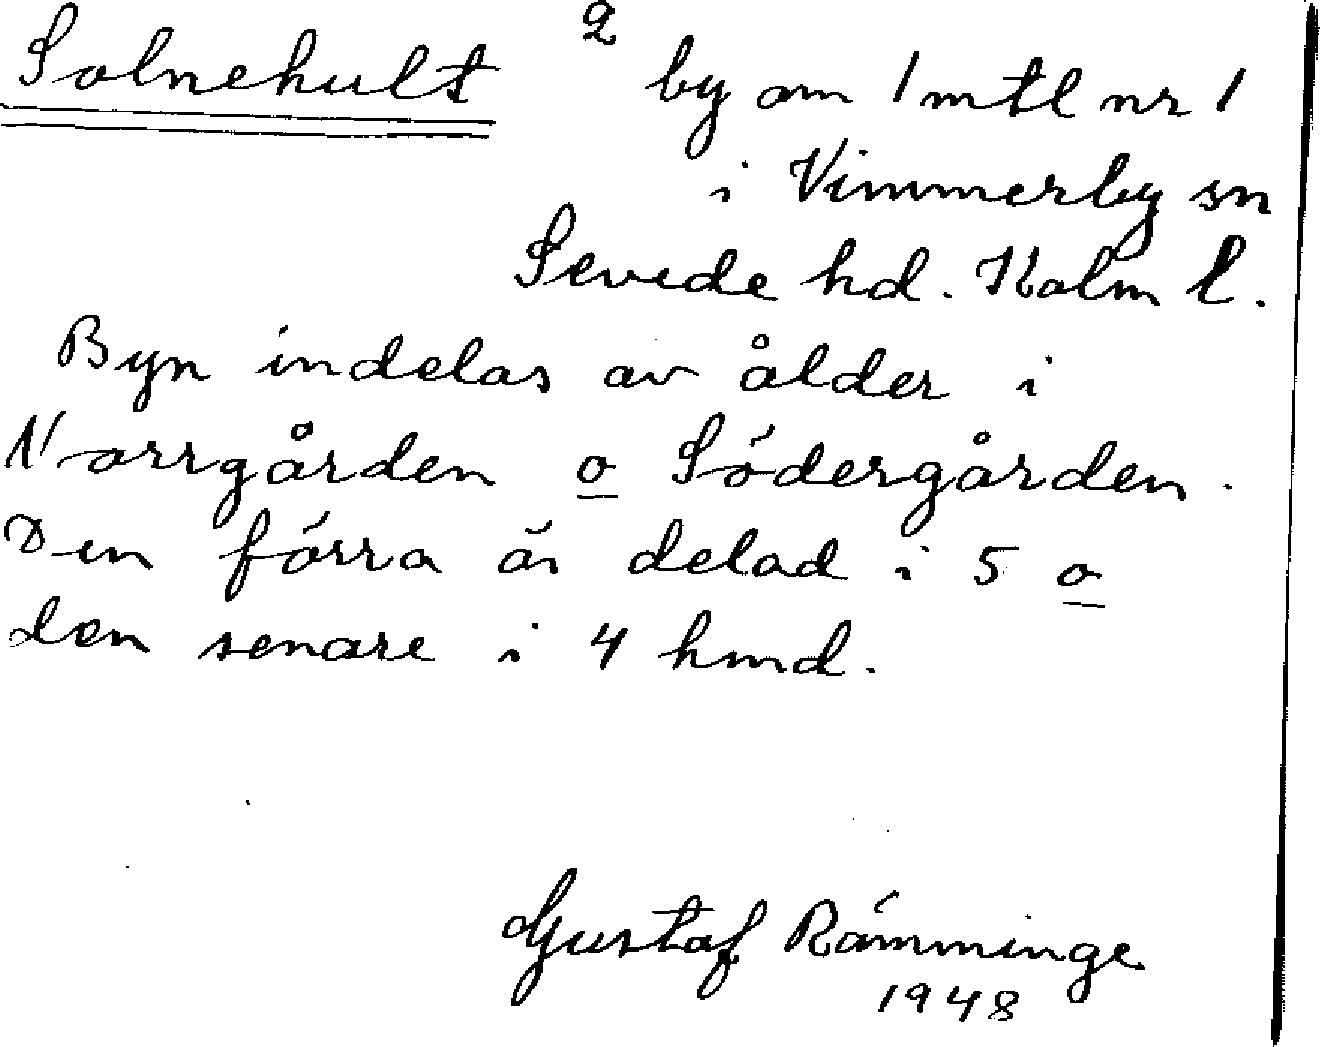 Solnehult 2 by om 1 mtl nr 1
i Vimmerby sn
Sevede hd. Kalm l.
Byn indelas av ålder i
Norrgården o Södergården.
Den förra är delad i 5 o
den senare i 4 hmd.
Gustaf Rämminge
1948